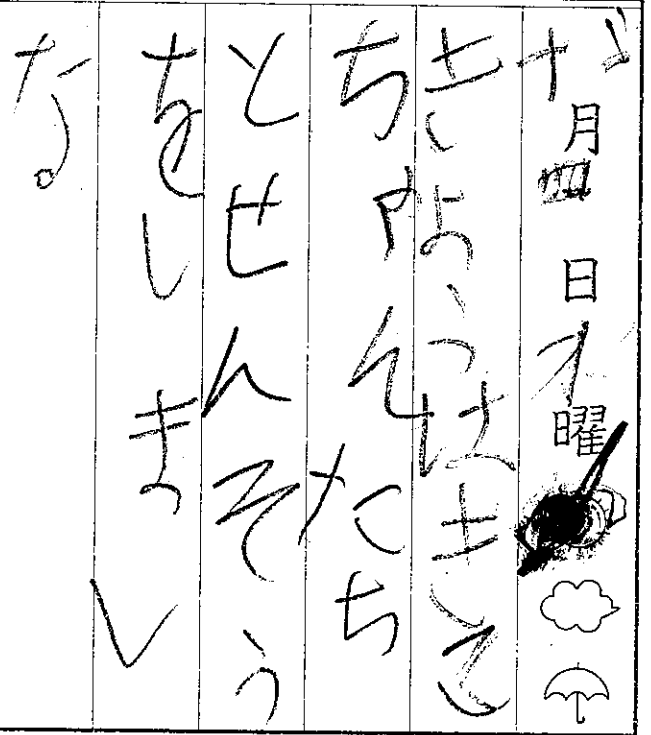 十月四日 曜
きょうはきこ
ちゃんたち
とせんそう
をしまし
た。